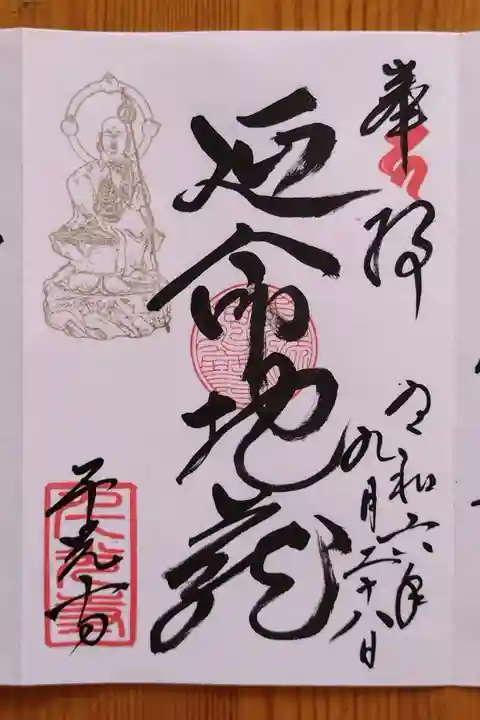 奉拝
令和六年
九月二十八日
延命地蔵
不光寺